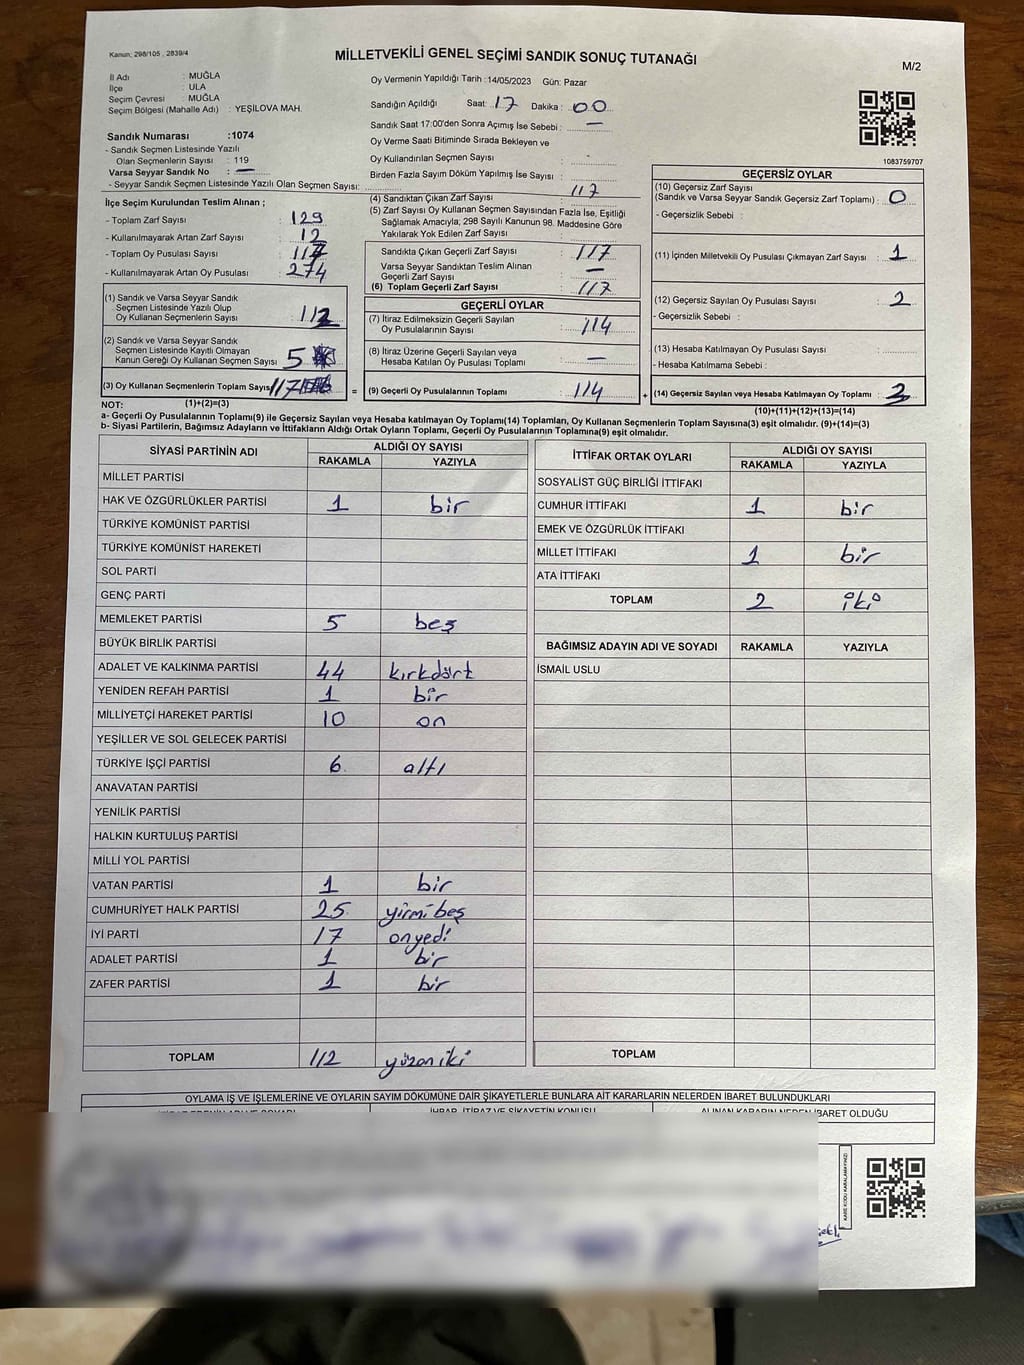 Kanun: 298/105 , 2839/4
MİLLETVEKİLİ GENEL SEÇİMİ SANDIK SONUÇ TUTANAĞI
M/2
İl Adı : MUĞLA
İlçe : ULA
Seçim Çevresi : MUĞLA
Seçim Bölgesi (Mahalle Adı) : YEŞİLOVA MAH.
Sandık Numarası :1074
- Sandık Seçmen Listesinde Yazılı
Olan Seçmenlerin Sayısı : 119
Varsa Seyyar Sandık No : —
- Seyyar Sandık Seçmen Listesinde Yazılı Olan Seçmen Sayısı:
Oy Vermenin Yapıldığı Tarih :14/05/2023 Gün: Pazar
Sandığın Açıldığı Saat: 17 Dakika : 00
Sandık Saat 17:00'den Sonra Açımış İse Sebebi : —
Oy Verme Saati Bitiminde Sırada Bekleyen ve
Oy Kullandırılan Seçmen Sayısı : -
Birden Fazla Sayım Döküm Yapılmış İse Sayısı :
1083759707
İlçe Seçim Kurulundan Teslim Alınan ;
- Toplam Zarf Sayısı : 129
- Kullanılmayarak Artan Zarf Sayısı : 12
- Toplam Oy Pusulası Sayısı :
- Kullanılmayarak Artan Oy Pusulası : 274
(1) Sandık ve Varsa Seyyar Sandık
Seçmen Listesinde Yazılı Olup
Oy Kullanan Seçmenlerin Sayısı : 112
(2) Sandık ve Varsa Seyyar Sandık
Seçmen Listesinde Kayıtlı Olmayan
Kanun Gereği Oy Kullanan Seçmen Sayısı : 5
(3) Oy Kullanan Seçmenlerin Toplam Sayısı 117
(1)+(2)=(3)
(4) Sandıktan Çıkan Zarf Sayısı : 117
(5) Zarf Sayısı Oy Kullanan Seçmen Sayısından Fazla İse, Eşitliği
Sağlamak Amacıyla, 298 Sayılı Kanunun 98. Maddesine Göre
Yakılarak Yok Edilen Zarf Sayısı :
Sandıkta Çıkan Geçerli Zarf Sayısı : 117
Varsa Seyyar Sandıktan Teslim Alınan
Geçerli Zarf Sayısı : —
(6) Toplam Geçerli Zarf Sayısı : 117
GEÇERLİ OYLAR
(7) İtiraz Edilmeksizin Geçerli Sayılan
Oy Pusulalarının Sayısı : 114
(8) İtiraz Üzerine Geçerli Sayılan veya
Hesaba Katılan Oy Pusulası Toplamı : —
= (9) Geçerli Oy Pusulalarının Toplamı : 114
GEÇERSİZ OYLAR
(10) Geçersiz Zarf Sayısı
(Sandık ve Varsa Seyyar Sandık Geçersiz Zarf Toplamı) : 0
- Geçersizlik Sebebi :
(11) İçinden Milletvekili Oy Pusulası Çıkmayan Zarf Sayısı : 1
(12) Geçersiz Sayılan Oy Pusulası Sayısı : 2
- Geçersizlik Sebebi :
(13) Hesaba Katılmayan Oy Pusulası Sayısı :
- Hesaba Katılmama Sebebi :
+ (14) Geçersiz Sayılan veya Hesaba Katılmayan Oy Toplamı : 3
(10)+(11)+(12)+(13)=(14)
NOT:
a- Geçerli Oy Pusulalarının Toplamı(9) ile Geçersiz Sayılan veya Hesaba katılmayan Oy Toplamı(14) Toplamları, Oy Kullanan Seçmenlerin Toplam Sayısına(3) eşit olmalıdır. (9)+(14)=(3)
b- Siyasi Partilerin, Bağımsız Adayların ve İttifakların Aldığı Ortak Oyların Toplamı, Geçerli Oy Pusulalarının Toplamına(9) eşit olmalıdır.
SİYASİ PARTİNİN ADI ALDIĞI OY SAYISI
RAKAMLA YAZIYLA
MİLLET PARTİSİ
HAK VE ÖZGÜRLÜKLER PARTİSİ 1 bir
TÜRKİYE KOMÜNİST PARTİSİ
TÜRKİYE KOMÜNİST HAREKETİ
SOL PARTİ
GENÇ PARTİ
MEMLEKET PARTİSİ 5 beş
BÜYÜK BİRLİK PARTİSİ
ADALET VE KALKINMA PARTİSİ 44 kırkdört
YENİDEN REFAH PARTİSİ 1 bir
MİLLİYETÇİ HAREKET PARTİSİ 10 on
YEŞİLLER VE SOL GELECEK PARTİSİ
TÜRKİYE İŞÇİ PARTİSİ 6 altı
ANAVATAN PARTİSİ
YENİLİK PARTİSİ
HALKIN KURTULUŞ PARTİSİ
MİLLİ YOL PARTİSİ
VATAN PARTİSİ 1 bir
CUMHURİYET HALK PARTİSİ 25 yirmibeş
İYİ PARTİ 17 onyedi
ADALET PARTİSİ 1 bir
ZAFER PARTİSİ 1 bir
TOPLAM 112 yüzoniki
İTTİFAK ORTAK OYLARI ALDIĞI OY SAYISI
RAKAMLA YAZIYLA
SOSYALİST GÜÇ BİRLİĞİ İTTİFAKI
CUMHUR İTTİFAKI 1 bir
EMEK VE ÖZGÜRLÜK İTTİFAKI
MİLLET İTTİFAKI 1 bir
ATA İTTİFAKI
TOPLAM 2 iki
BAĞIMSIZ ADAYIN ADI VE SOYADI RAKAMLA YAZIYLA
İSMAİL USLU
TOPLAM
OYLAMA İŞ VE İŞLEMLERİNE VE OYLARIN SAYIM DÖKÜMÜNE DAİR ŞİKAYETLERLE BUNLARA AİT KARARLARIN NELERDEN İBARET BULUNDUKLARI
İHBAR, İTİRAZ VE ŞİKAYETİN KONUSU ALINAN KARARIN NEDEN İBARET OLDUĞU
KARE KODU KARALAMAYINIZ!